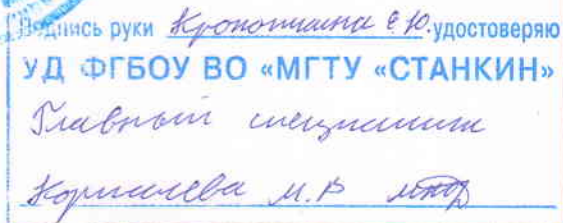 Подпись руки Кропоткина Е.Ю. удостоверяю
УД ФГБОУ ВО «МГТУ «СТАНКИН»
Главный специалист
М.В